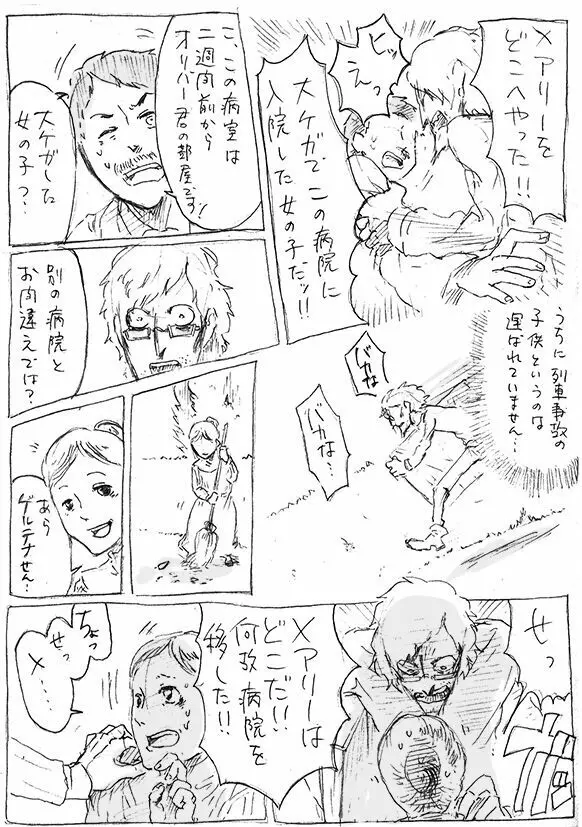 メアリーを
どこへやった!!
ヒッ
えっ
大ケガで この病院に
入院した 女の子だッ!!
こ、この病室は
二週間前から
オリバー君の部屋です!
大ケガした
女の子?…
うちに 列車事故の
子供というのは
運ばれていません…
別の病院と
お間違えでは?
バカな
バカな…
あら
ゲルテナせん…
せっ
メアリーは
どこだ!!
何故 病院を
移した!!
ちょっ
せっ
メ…